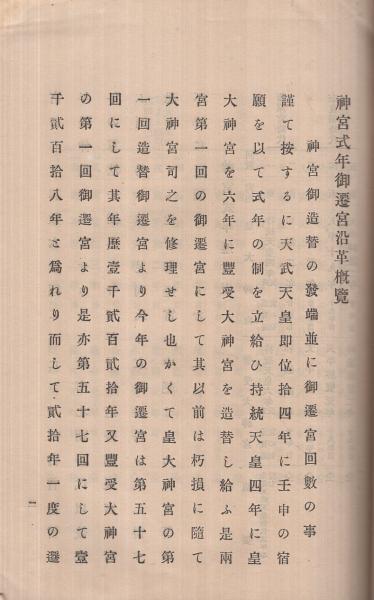 神宮式年御遷宮沿革概覽
神宮御造替の發端並に御遷宮回數の事
謹て按するに天武天皇即位拾四年に壬申の宿
願を以て式年の制を立給ひ持統天皇四年に皇
大神宮を六年に豐受大神宮を造替し給ふ是兩
宮第一回の御遷宮にして其以前は朽損に隨て
大神宮司之を修理せし也かくて皇大神宮の第
一回造替御遷宮より今年の御遷宮は第五十七
回にして其年歷壹千貳百貳拾年又豐受大神宮
の第一回御遷宮より是亦第五十七回にして壹
千貳百拾八年と爲れり而して貳拾年一度の遷
一